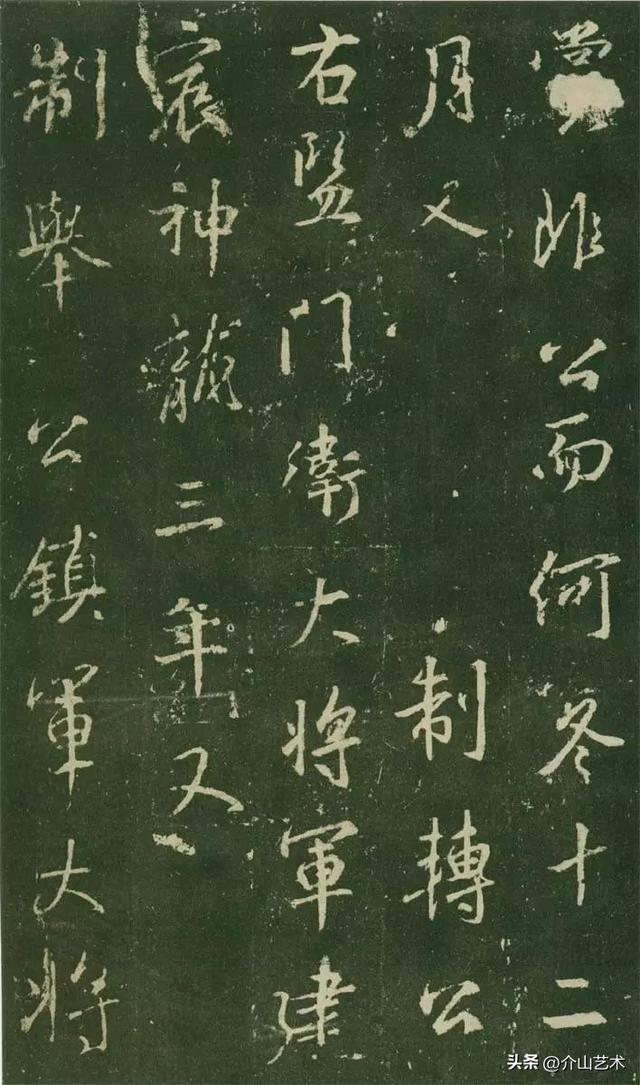 賞非公而何冬十二
月又 制轉公
右監門衛大將軍建
宸神龍三年又
制舉公鎮軍大將
头条 @介山艺术